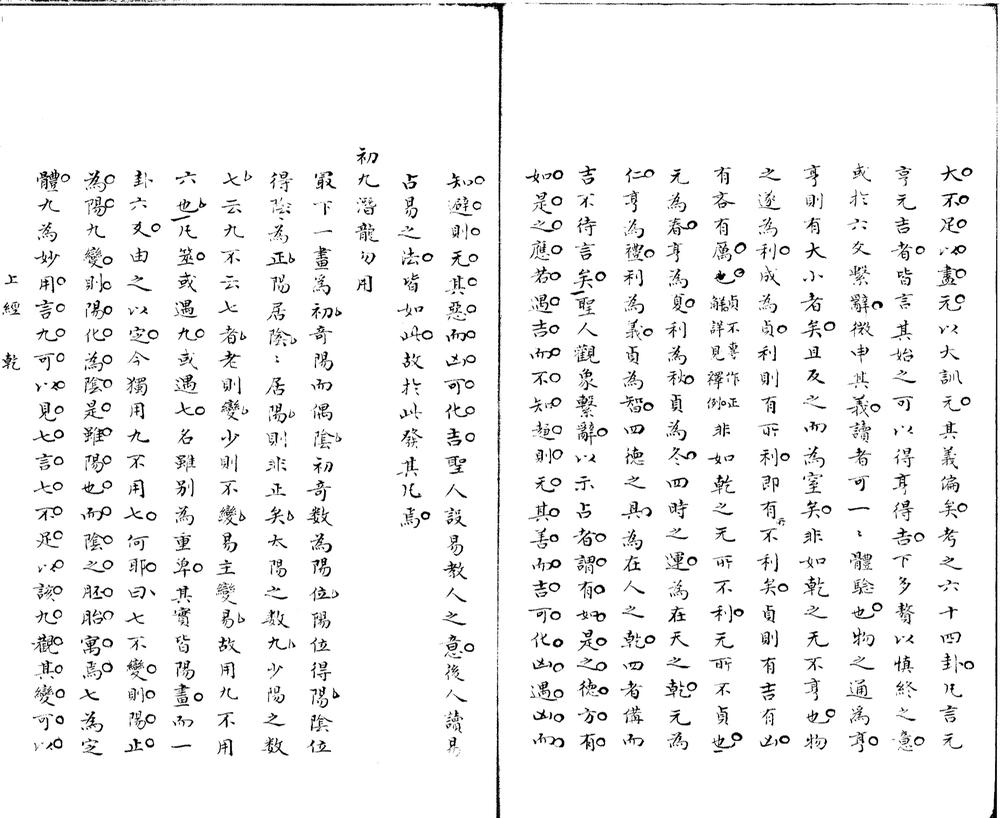 大不足以盡元以大訓元其義偏矣考之六十四卦凡言元
亨元吉者皆言其始之可以得亨得吉下多贅以慎終之意
或於六爻繫辭微申其義讀者可一〻體驗也物之通為亨
亨則有大小者矣且反之而為室矣非如乾之无不亨也物
之遂為利成為貞利則有所利即有所不利矣貞則有吉有凶
有吝有厲也貞不專作正解詳見釋例非如乾之无所不利无所不貞也
元為春亨為夏利為秋貞為冬四時之運為在天之乾元為
仁亨為禮利為義貞為智四德之具為在人之乾四者備而
吉不待言矣聖人觀象繫辭以示占者謂有如是之德方有
如是之應若遇吉而不知趨則无其善而吉可化凶遇凶而
知避則无其惡而凶可化吉聖人設易教人之意後人讀易
占易之法皆如此故於此發其凡焉
初九潛龍勿用
最下一畫為初奇陽而偶陰初奇數為陽位陽位得陽陰位
得陰為正陽居陰〻居陽則非正矣太陽之數九少陽之數
七云九不云七者老則變少則不變易主變易故用九不用
六也凡筮或遇九或遇七名雖別為重單其實皆陽畫而一
卦六爻由之以定今獨用九不用七何耶曰七不變則陽止
為陽九變則陽化為陰是雖陽也而陰之胚胎寓焉七為定
體九為妙用言九可以見七言七不足以該九觀其變可以
上經 乾